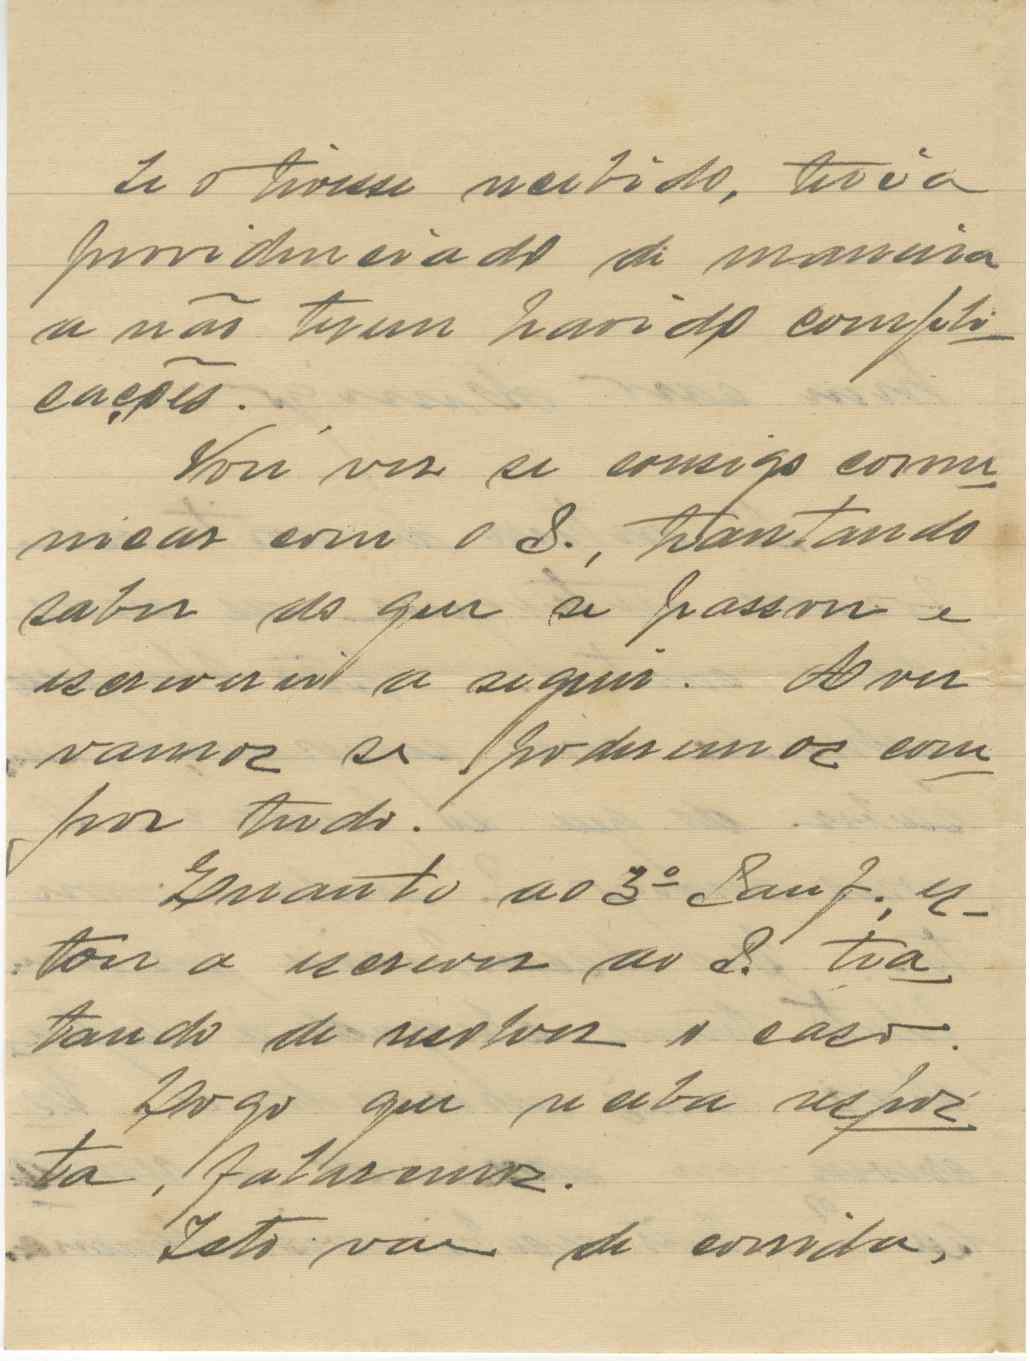 Se o tivesse recebido, teria
providenciado de maneira
a não terem havido compli-
cações.
Vou ver se consigo comu-
nicar com o S., tratando
saber do que se passou e
escreverei a seguir. A ver
vamos se poderemos com-
por tudo.
Quanto ao 3º Sauf., es-
tou a escrever ao S. tra-
tando de resolver o caso.
Logo que receba respos-
ta, falaremos.
Isto vae de corrida,